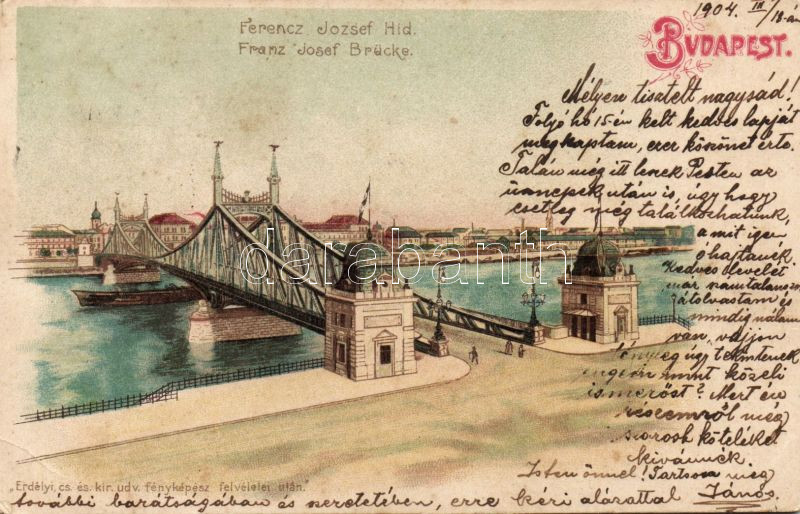 Ferencz József Híd.
Franz Josef Brücke.
1904. III/18-án
BUDAPEST.
Mélyen tisztelt nagysád!
Folyó hó 15-én kelt kedves lapját
megkaptam, ezer köszönet érte.
Talán még itt lenek Pesten az
ünnepek után is, úgy hogy
esetleg még találkozhatunk,
a mit igen
óhajtanék.
Kedves levelét
már számtalanszor
átolvastam és
mindig nálam
van, vajjon
tényleg úgy tekintenek
engem mint közeli
ismerőst? Mert én
részemről még
szorosb köteléket
kivánnék.
Isten önnel! Tartson meg
további barátságában és szeretetében, erre kéri alázattal János
darabanth
„Erdélyi, cs. és. kir. udv. fényképész felvételei után."